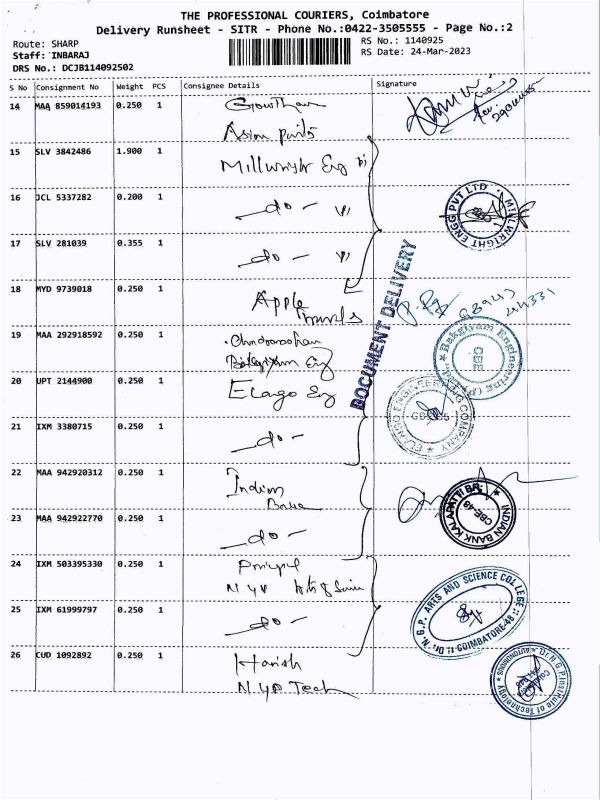 THE PROFESSIONAL COURIERS, Coimbatore
Delivery Runsheet - SITR - Phone No.:0422-3505555 - Page No.:2
Route: SHARP
RS No.: 1140925
Staff: INBARAJ
RS Date: 24-Mar-2023
DRS No.: DCJB114092502
S No Consignment No Weight PCS Consignee Details Signature
14 MAA 859014193 0.250 1 Gowtham
Asian paints
15 SLV 3842486 1.900 1 Millwright Eng
16 JCL 5337282 0.200 1 -do-
MILLWRIGHT ENGG PVT LTD
17 SLV 281039 0.355 1 -do-
DOCUMENT DELIVERY
18 MYD 9739018 0.250 1 Apple
19 MAA 292918592 0.250 1
Bakgiyam Eng
Bakgiyam Engineering (P) Ltd
CBE
20 UPT 2144900 0.250 1 Elango Eng
ELANGO ENGINEERING COMPANY
21 IXM 3380715 0.250 1 -do-
22 MAA 942920312 0.250 1 Indian
Bank
INDIAN BANK KALAPATTI BR.
CBE-48
23 MAA 942922770 0.250 1 -do-
24 IXM 503395330 0.250 1 Principal
Arts & Science
Dr. N.G.P. ARTS AND SCIENCE COLLEGE
COIMBATORE-48
25 IXM 61999797 0.250 1 -do-
26 CUD 1092892 0.250 1 Harish
N.G.P Tech
Dr. N G P Institute of Technology
AUTONOMOUS